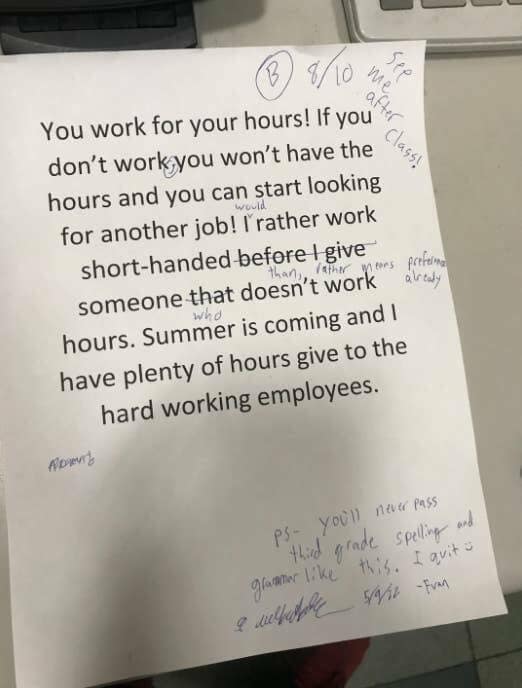 B 8/10 see
me
after
class!
You work for your hours! If you
don't work, you won't have the
hours and you can start looking
would
for another job! I rather work
short-handed before I give
than, rather means preference
already
someone that doesn't work
who
hours. Summer is coming and I
have plenty of hours give to the
hard working employees.
ps- you'll never pass
third grade spelling and
grammar like this. I quit :)
-Evan